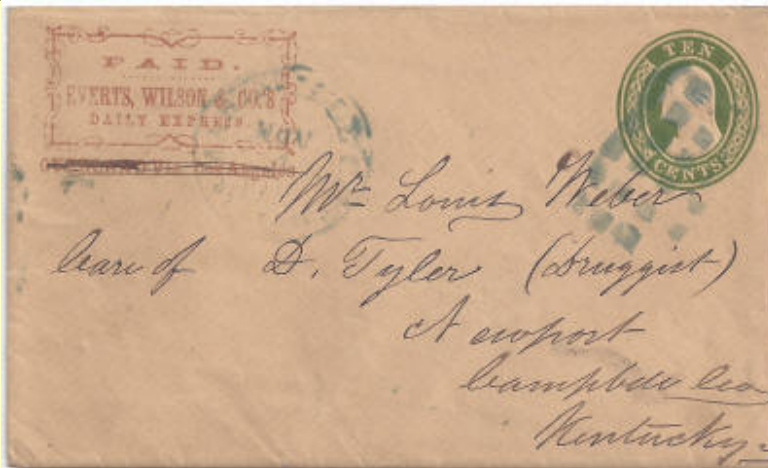 PAID.
EVERTS, WILSON & CO.'S
DAILY EXPRESS
TEN
CENTS
Mr Louis Weber
Care of D. Tyler (Druggist)
Newport
Campbell Co
Kentucky